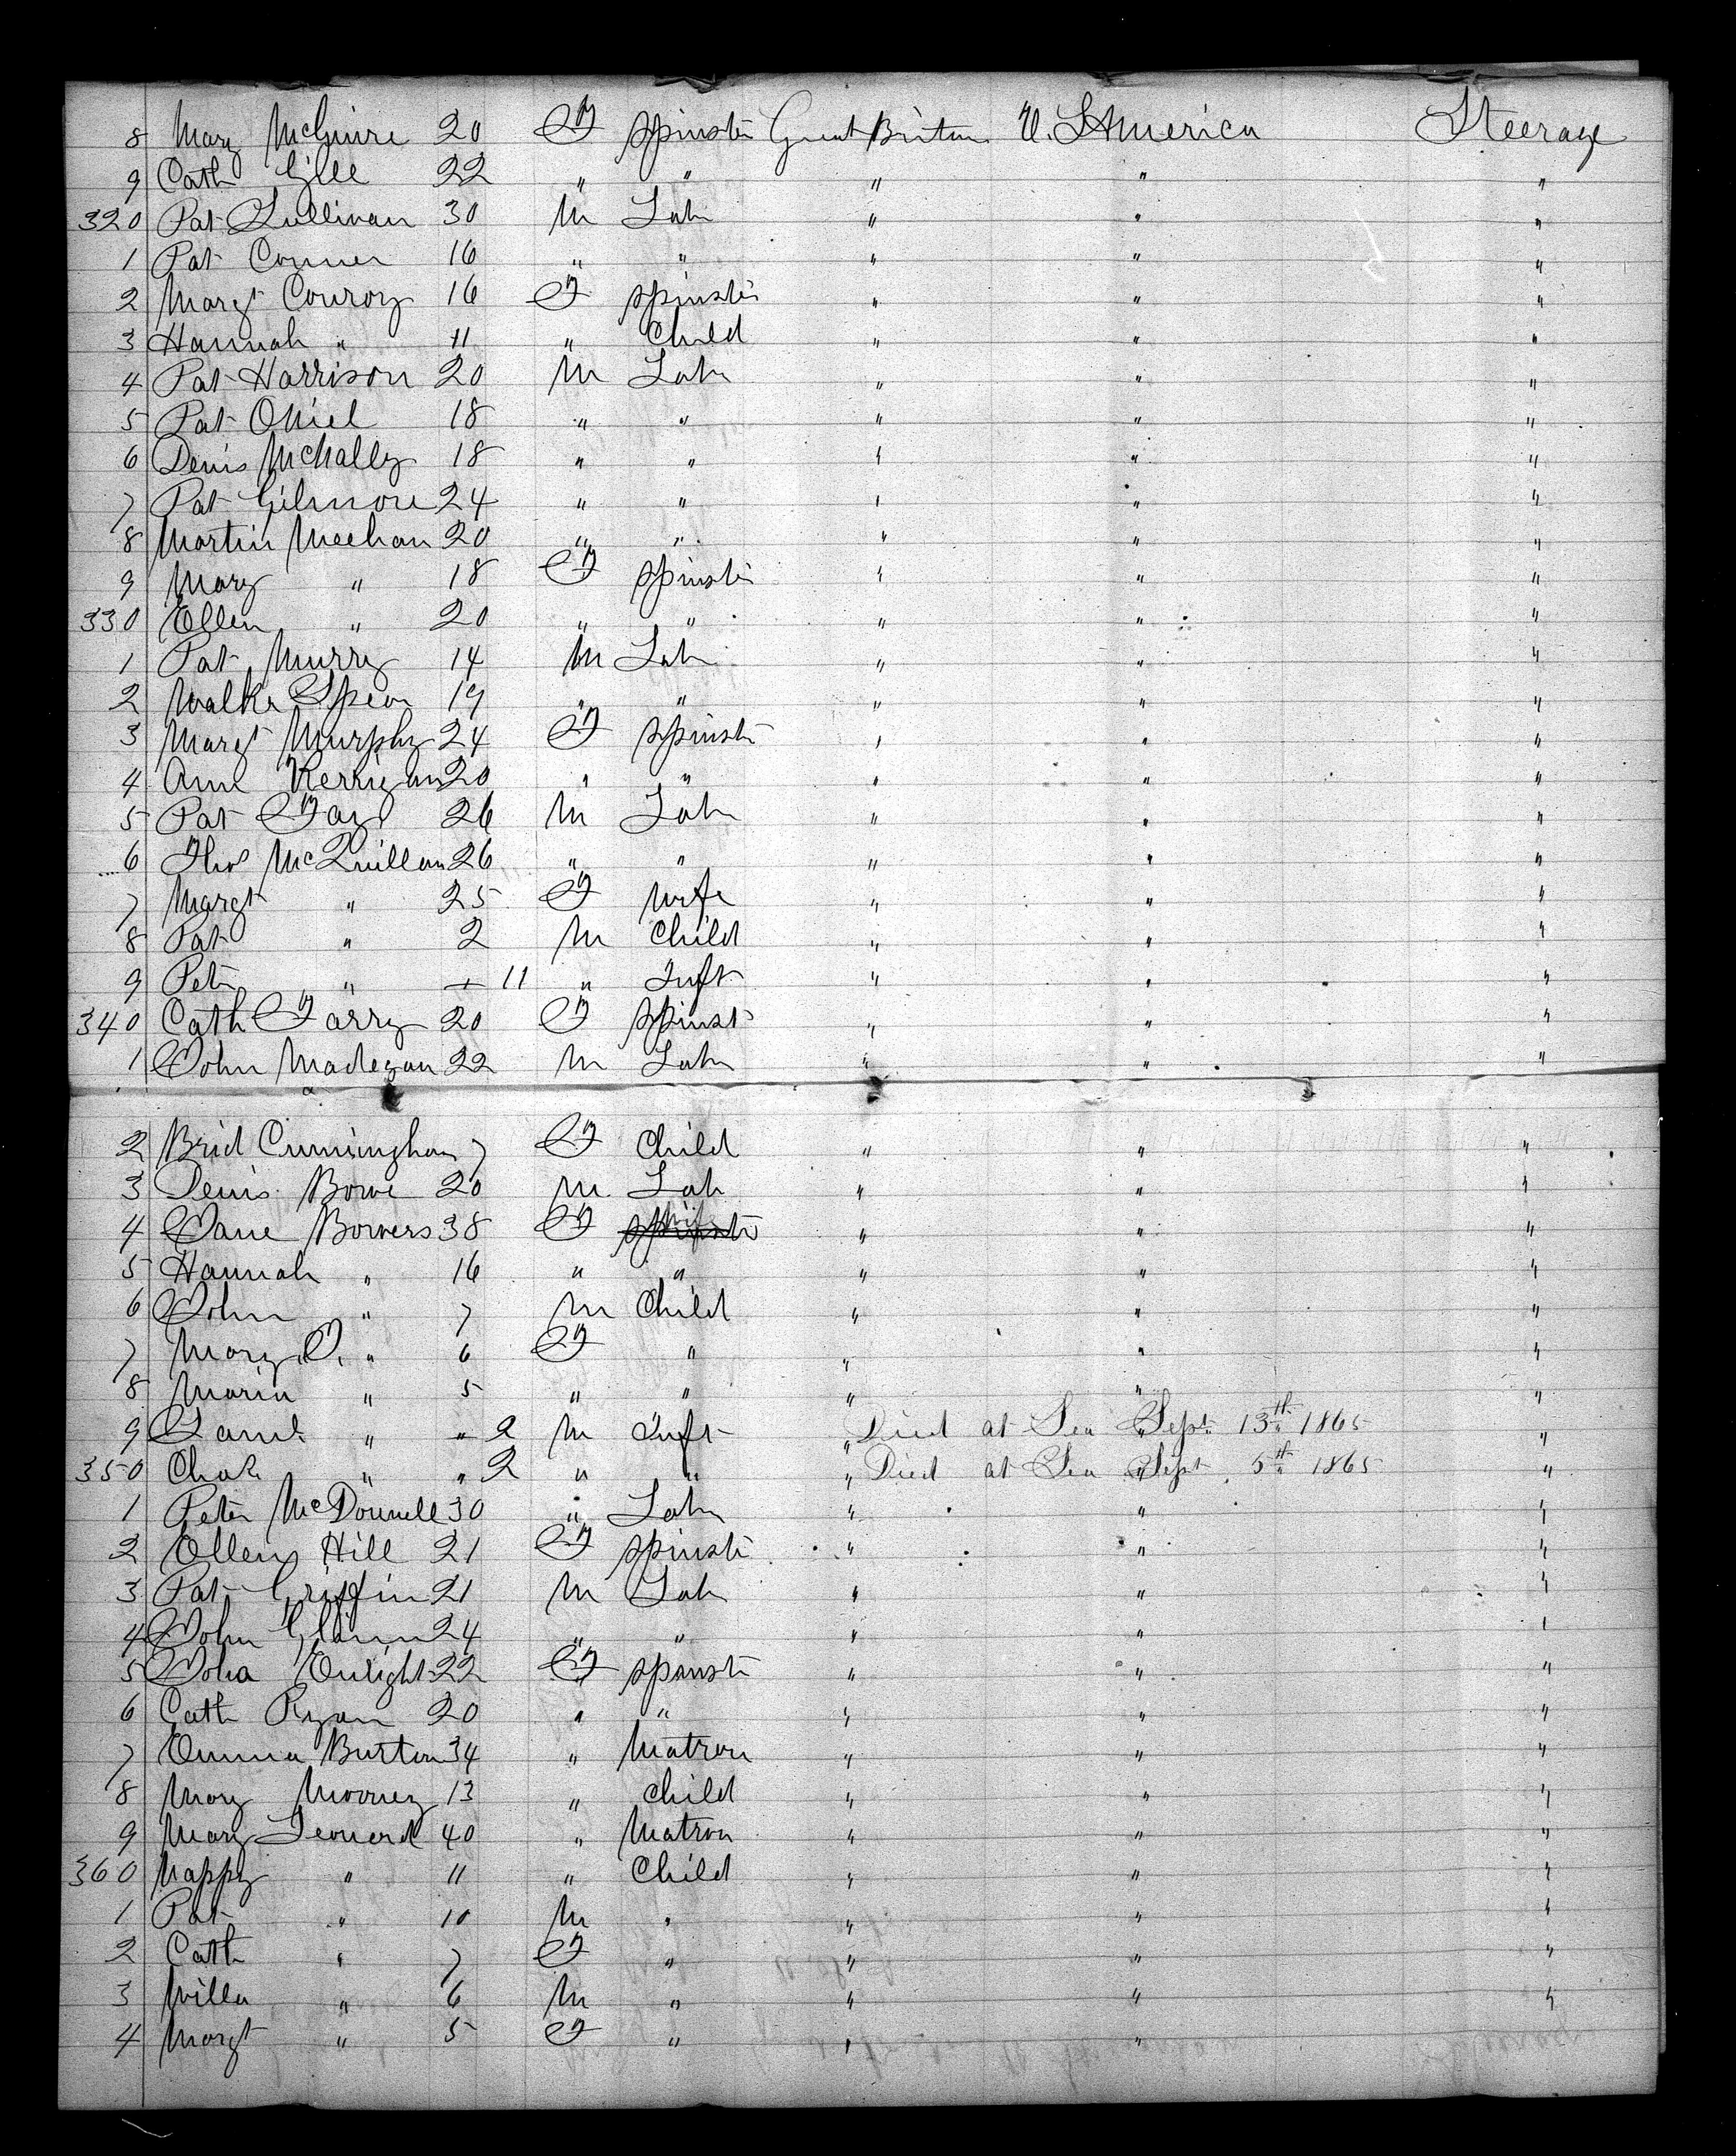 8 Mary McGuire 20 F Spinster Great Britain U. S America Steerage
9 Cath Gill 22 " " " " "
320 Pat Sullivan 30 M Labr " " "
1 Pat Conner 16 " " " " "
2 Margt Conroy 16 F Spinster " " "
3 Hannah " 11 " Child " " "
4 Pat Harrison 20 M Labr " " "
5 Pat ONiel 18 " " " " "
6 Denis McNally 18 " " " " "
7 Pat Gilmore 24 " " " " "
8 Martin Meehan 20 " " " " "
9 Mary " 18 F Spinster " " "
330 Ellen " 20 " " " " "
1 Pat Murry 14 M Labr " " "
2 Walter Spear 19 " " " " "
3 Margt Murphy 24 F Spinstr " " "
4 Ann Kerrigan 20 " " " " "
5 Pat Fay 26 M Labr " " "
6 Thos McQuillan 26 " " " " "
7 Margt " 25 F Wife " " "
8 Pat " 2 M Child " " "
9 Petr " + 11 " Inft " " "
340 Cath Farry 20 F Spinst " " "
1 John Madegan 22 M Labr " " "
2 Brid Cunningham 7 F Child " " "
3 Denis Bowe 20 M Lab " " "
4 Jane Bowers 38 F Spinster Wife " " "
5 Hannah " 16 " " " " "
6 John " 7 M Child " " "
7 Mary J. " 6 F " " " "
8 Maria " 5 " " " " "
9 Saml " " 2 M Inft " Died at Sea Sept. 13th 1865 " "
350 Chas " " 2 " " " Died at Sea Sept. 5th 1865 " "
1 Peter McDonnell 30 " Labr " " "
2 Ellen Hill 21 F Spinstr " " "
3 Pat Griffin 21 M Lab " " "
4 John Glann 24 " " " " "
5 Joha Enright 22 F Spinstr " " "
6 Cath Ryan 20 " " " " "
7 Emma Burton 34 " Matron " " "
8 Mary Mooney 13 " Child " " "
9 Mary Leonard 40 " Matron " " "
360 Nappy " 11 " Child " " "
1 Pat " 10 M " " " "
2 Cath " 7 F " " " "
3 Willm " 6 M " " " "
4 Margt " 5 F " " " "